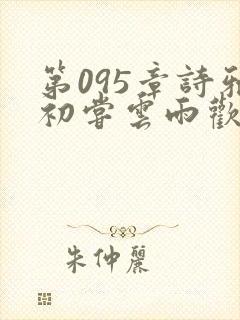 第095章詩雅
初嘗雲雨歡
朱仲麗